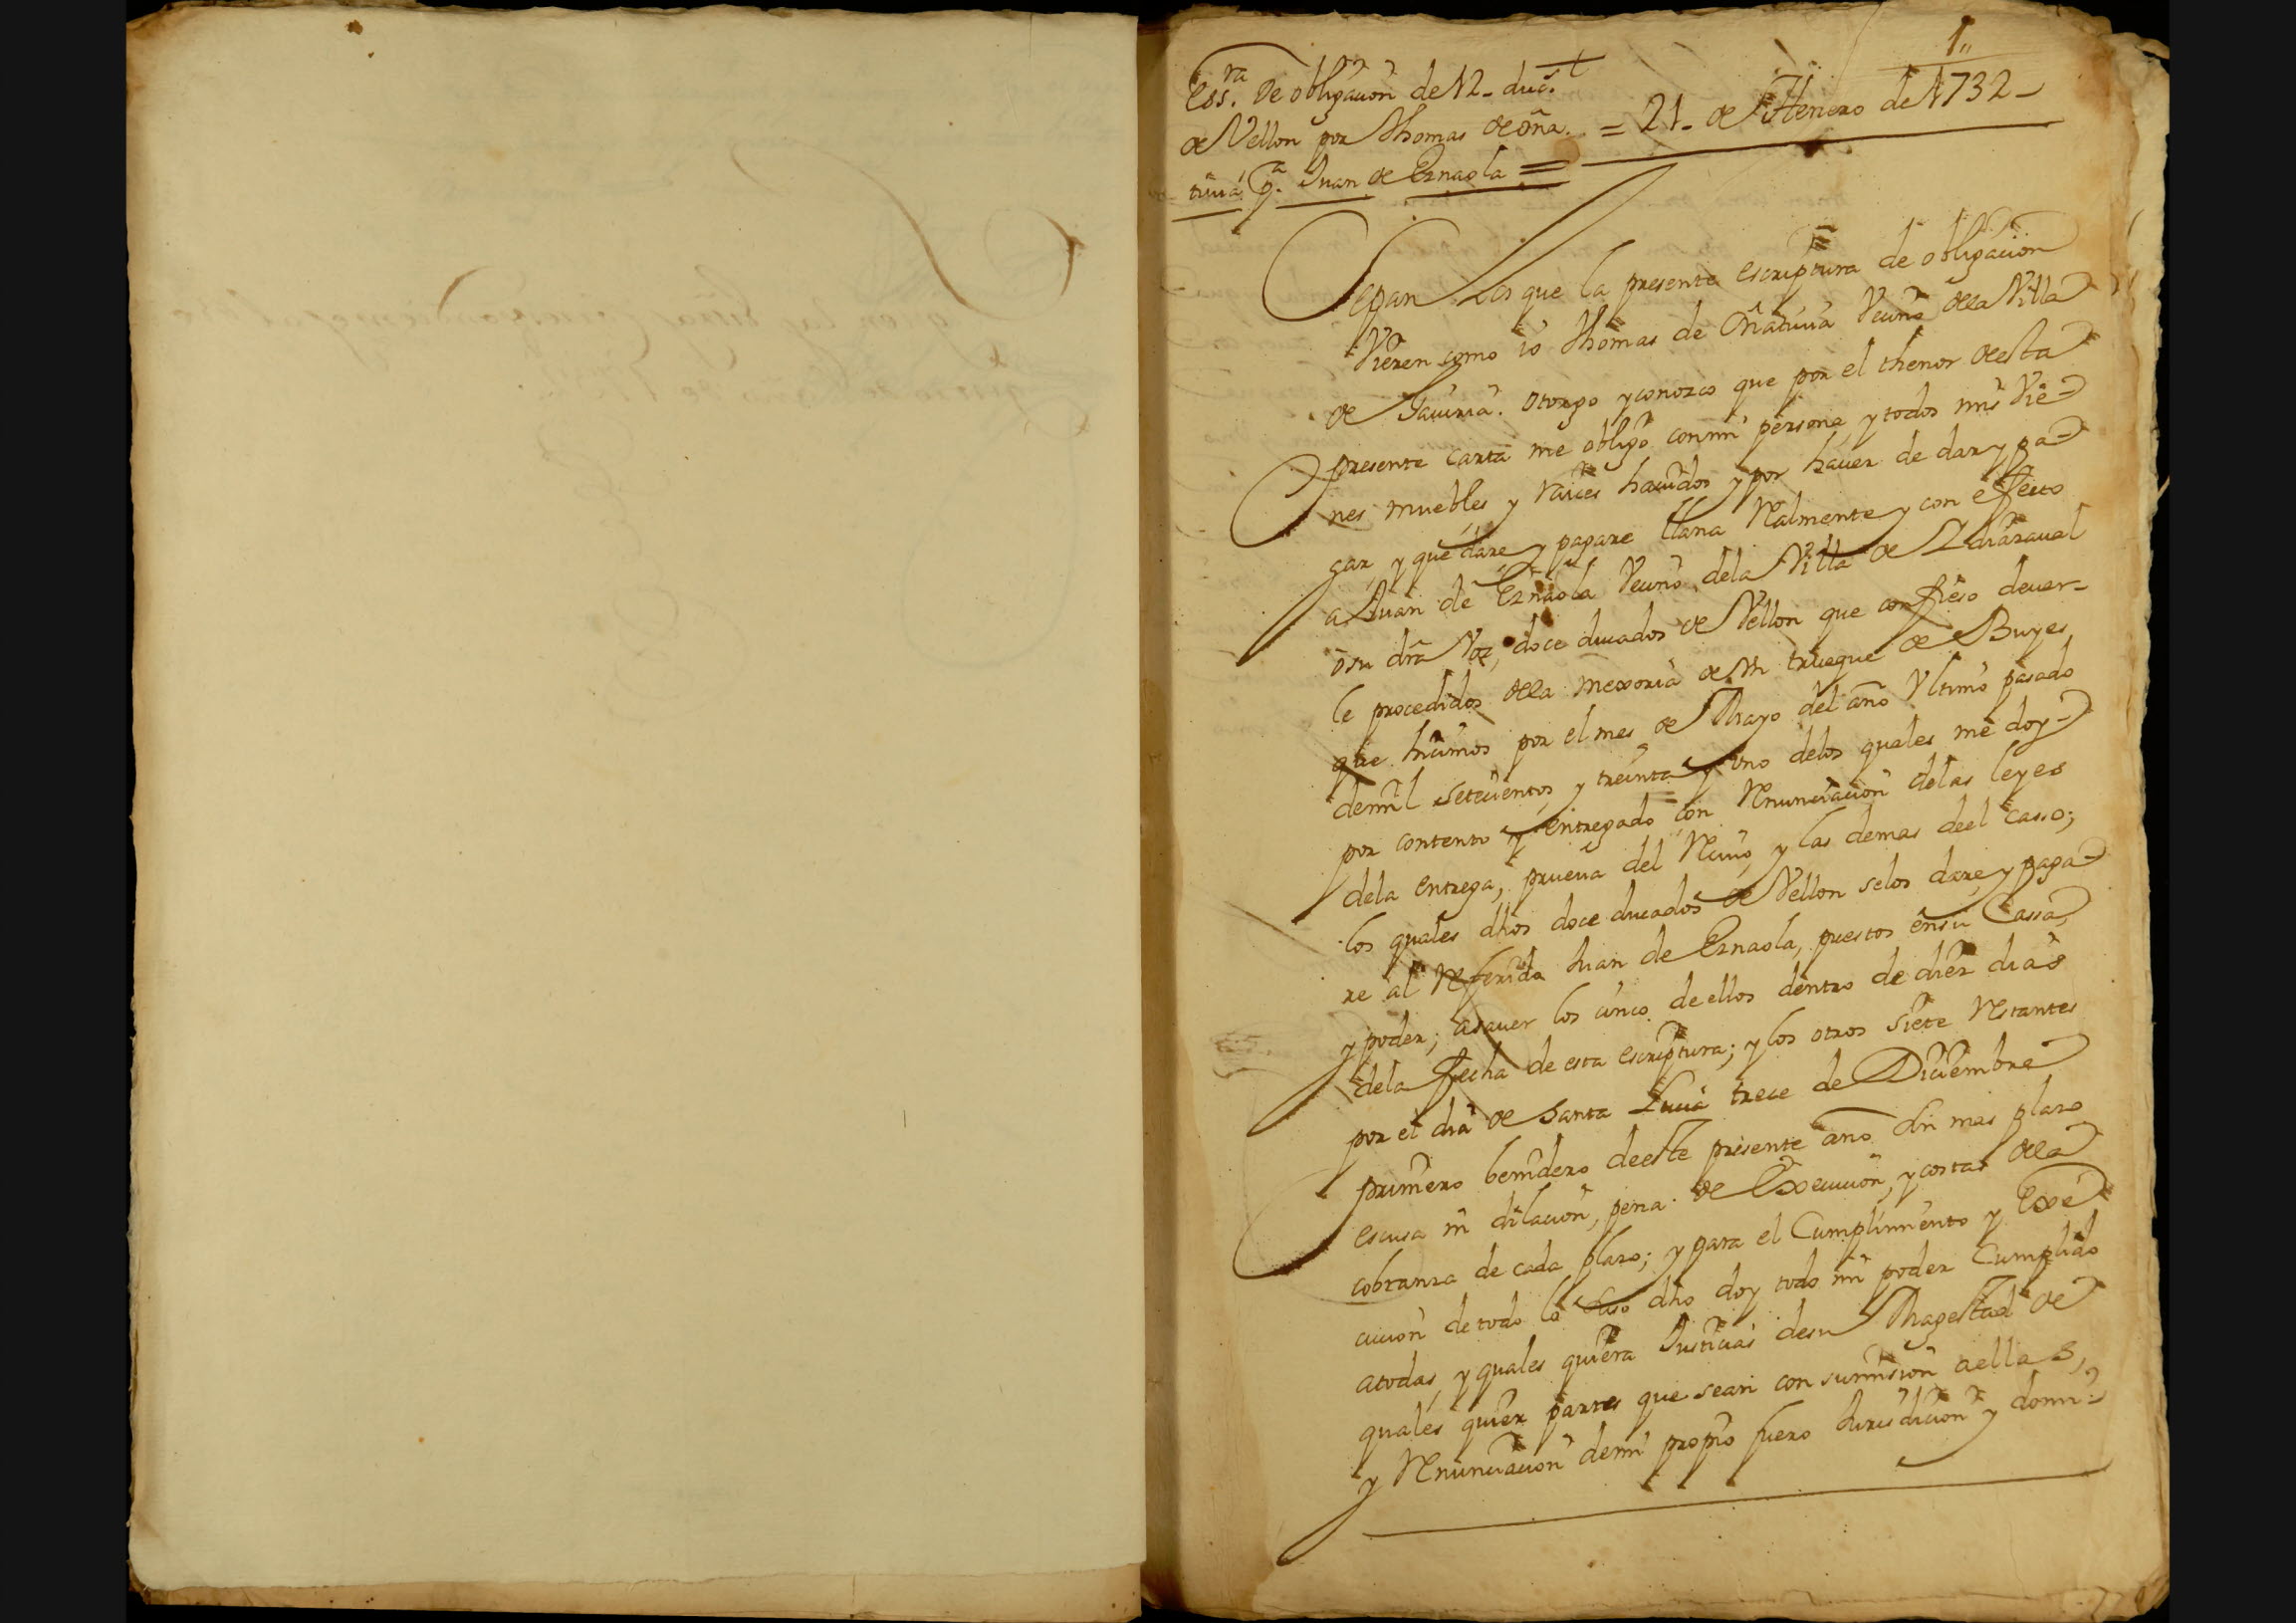 1,,
Ess.ra De obligacion de 12 - duc.s
de Vellon por Thomas de oña = 21 - de Henero de 1732 -
tiuia p.a Juan de Eznaola =
Sepan Los que la presente escriptura de obligacion
Vieren como io Thomas de Oñatiuia Vecino dela Villa
de Gauiria. otorgo y conozco que por el thenor de esta
presente carta me obligo con mi persona, y todos mis Vie-
nes muebles y raices hauidos y por hauer de dar y pa-
gar, y que dare y pagare llana Realmente y con effecto
a Juan de Eznaola Vecino dela Villa de Ydiazaual
o su dra Voz, doce ducados de Vellon que confieso deuer-
le procedidos dela mexoria de Vn trueque de Bueyes
que hicimos por el mes de Mayo del año Vltimo pasado
de mil setecientos y treinta y uno delos quales me doy -
por contento y entregado con Renunciacion delas leyes
dela entrega, prueua del Reciuo, y las demas deel casso;
los quales dhos doce ducados de Vellon selos dare, y paga-
re al Referido Juan de Eznaola, puestos en su Cassa,
y poder; asauer los cinco de ellos dentro de diez dias
dela fecha de esta escriptura; y los otros siete Restantes
por el dia de Santa Lucia trece de Diciembre
primero benidero de este presente año sin mas plazo
escusa ni dilacion, pena de Execucion, y costas dela
cobranza de cada plazo; y para el Cumplimiento y Exe-
cucion de todo lo suso dho doy todo mi poder Cumplido
a todas, y quales quiera Justicias de su Magestad de
quales quier partes que sean con sumision a ellas,
y Renunciacion de mi propio fuero Jurisdicion y domi-